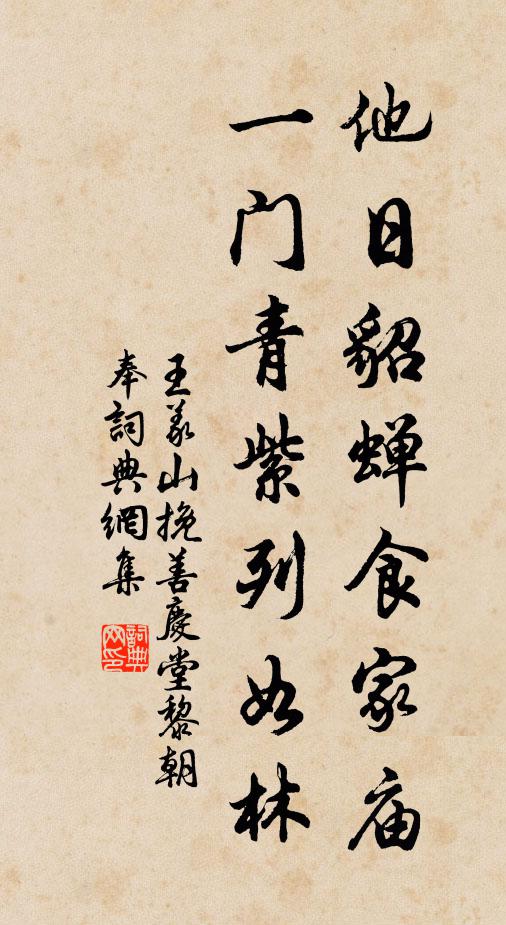 他日貂蝉食家庙
一门青紫列如林
王义山挽善庆堂黎朝
奉詞典網集
詞典网印